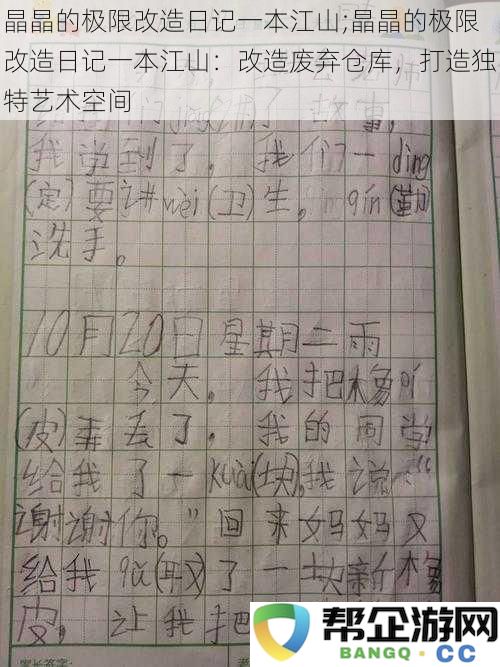 晶晶的极限改造日记一本江山;晶晶的极限
改造日记一本江山：改造废弃仓库，打造独
特艺术空间
给 们 jiǎng(讲)了 故事,
我学到了，我们一dìng
(定)要讲wèi(卫)生。 qín(勤)
洗手。
10月20日 星期二 雨
今天。我把橡pí
(皮)弄丢了，我的同学
给我了一kuài(块),我说:“
谢谢你。”回来妈妈又
给我qǔ(取)了一块新橡
皮，让我把
家长签字:
帮企游网
BANGQ·CC